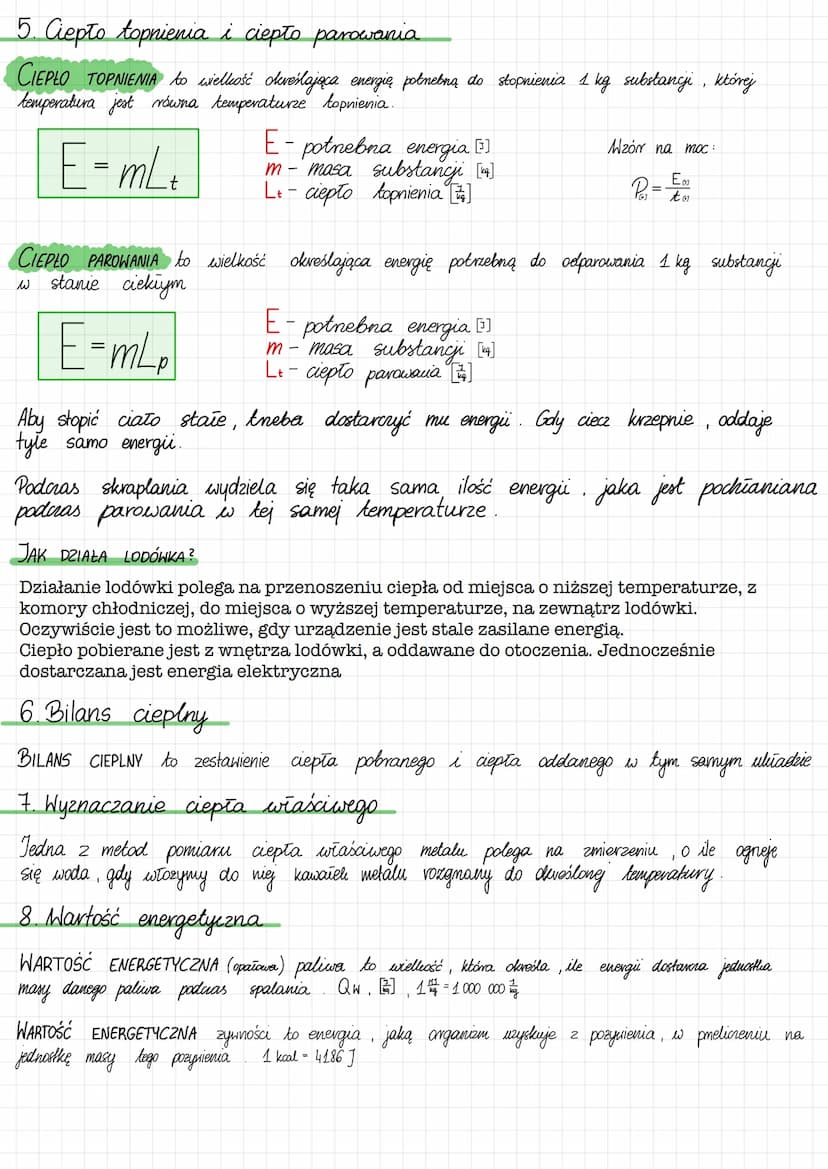 5. Ciepło topnienia i ciepło parowania
CIEPŁO TOPNIENIA to wielkość określająca energię potrzebną do stopnienia 1 kg substancji, której
temperatura jest równa temperaturze topnienia.
E = mLt
E - potrzebna energia [J]
m - masa substancji [kg]
Lt - ciepło topnienia [J/kg]
Wzór na moc:
P[W] = E[J]/t[s]
CIEPŁO PAROWANIA to wielkość określająca energię potrzebną do odparowania 1 kg substancji
w stanie ciekłym
E = mLp
E - potrzebna energia [J]
m - masa substancji [kg]
Lt - ciepło parowania [J/kg]
Aby stopić ciało stałe, trzeba dostarczyć mu energii. Gdy ciecz krzepnie, oddaje
tyle samo energii.
Podczas skraplania wydziela się taka sama ilość energii, jaka jest pochłaniana
podczas parowania w tej samej temperaturze.
JAK DZIAŁA LODÓWKA?
Działanie lodówki polega na przenoszeniu ciepła od miejsca o niższej temperaturze, z
komory chłodniczej, do miejsca o wyższej temperaturze, na zewnątrz lodówki.
Oczywiście jest to możliwe, gdy urządzenie jest stale zasilane energią.
Ciepło pobierane jest z wnętrza lodówki, a oddawane do otoczenia. Jednocześnie
dostarczana jest energia elektryczna
6. Bilans cieplny
BILANS CIEPLNY to zestawienie ciepła pobranego i ciepła oddanego w tym samym układzie
7. Wyznaczanie ciepła właściwego
Jedna z metod pomiaru ciepła właściwego metalu polega na zmierzeniu, o ile ogrzeje
się woda, gdy włożymy do niej kawałek metalu rozgrzany do określonej temperatury.
8. Wartość energetyczna
WARTOŚĆ ENERGETYCZNA (opałowa) paliwa to wielkość, która określa, ile energii dostarcza jednostka
masy danego paliwa podczas spalania. Qw, [J/kg], 1 MJ/kg = 1 000 000 J/kg
WARTOŚĆ ENERGETYCZNA żywności to energia, jaką organizm uzyskuje z pożywienia, w przeliczeniu na
jednostkę masy tego pożywienia. 1 kcal = 4186 J